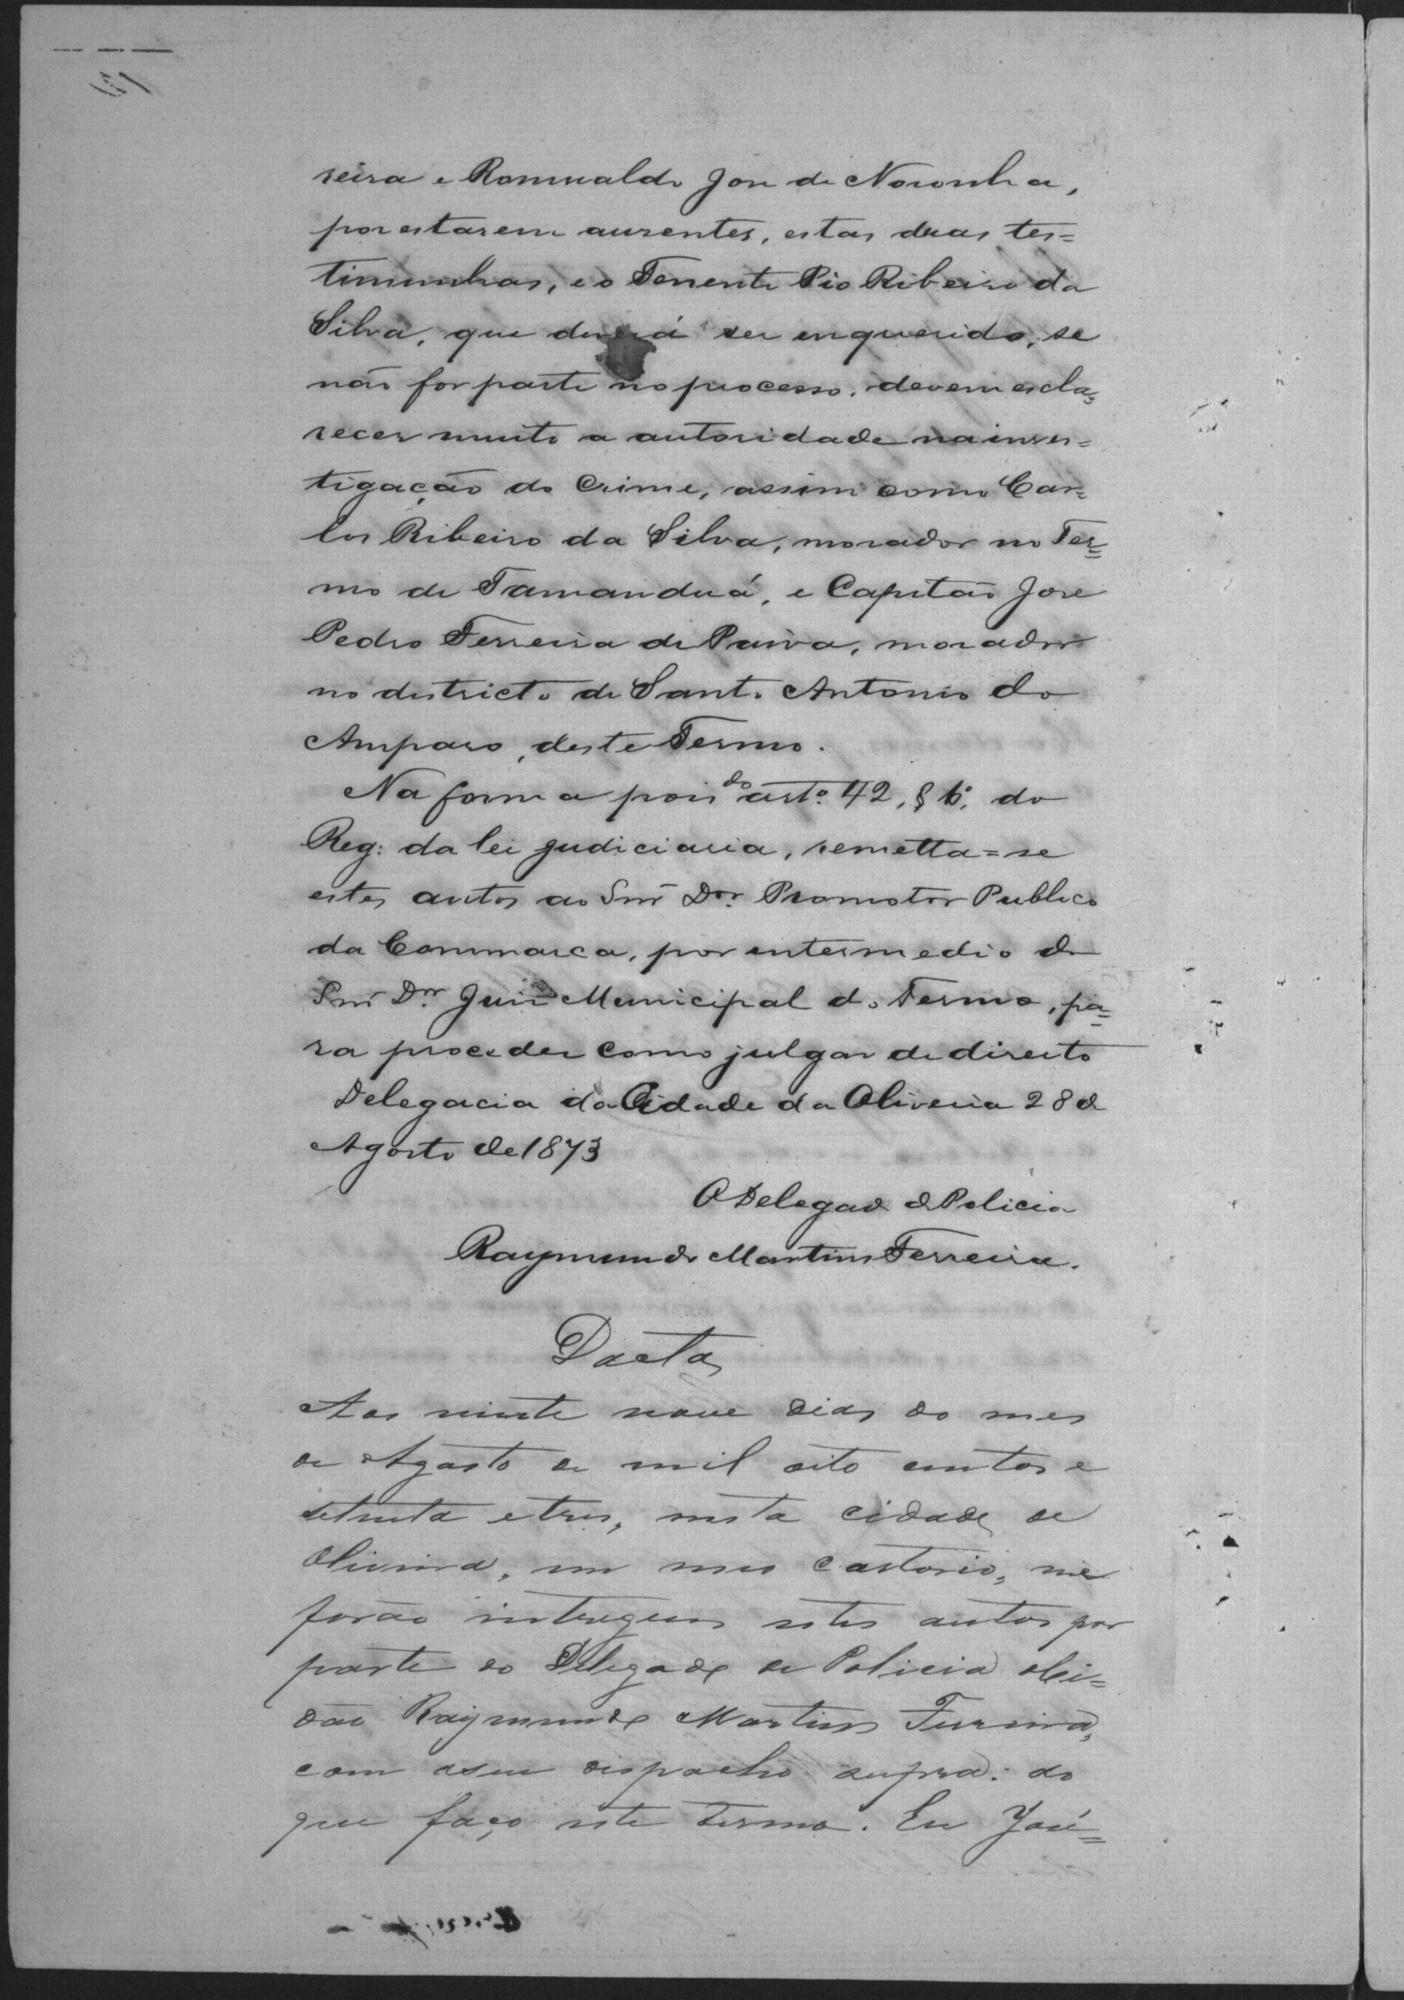 reira e Romualdo Jose de Noronha,
por estarem auzentes, estas duas tes=
timunhas, e o Tenente Pio Ribeiro da
Silva, que deverá ser enquerido, se
não for parte no processo, devem escla=
recer muito a autoridade na inves=
tigação do Crime, assim como Car=
los Ribeiro da Silva, morador no Ter=
mo de Tamanduá, e Capitão Jose
Pedro Ferreira de Paiva, morador
no districto de Santo Antonio do
Amparo, deste Termo.
Na forma pois do arto. 42, § 6º, do
Reg: da lei judiciaria, remetta=se
estes autos ao Snr Dor. Promotor Publico
da Commarca, por entermedio do
Snr Dor Juiz Municipal do Termo, pa=
ra proceder como julgar de direito
Delegacia da Cidade da Oliveira 28 de
Agosto de 1873
O Delegado de Policia
Raymundo Martins Ferreira.
Dacta
Aos vinte nove dias do mes
de Agosto de mil oito centos e
setenta e tres, nesta cidade de
Oliveira, em meu cartorio, me
forão intregues estes autos por
parte do Delegado de Policia Ci=
dão Raymundo Martins Ferreira,
com o seu despacho supra: do
que faço este termo. Eu José=